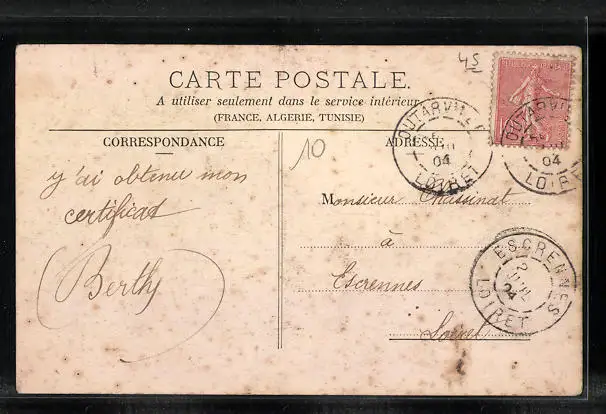 45
CARTE POSTALE.
A utiliser seulement dans le service intérieur
(FRANCE, ALGERIE, TUNISIE)
CORRESPONDANCE
ADRESSE
10
y'ai obtenu mon
certificat
Berthy
Monsieur Chassinat
à
Escrennes
Loiret
OUTARVILLE
04
LOIRET
OUTARVILLE
04
LOIRET
ESCRENNES
2
JUIL
04
LOIRET